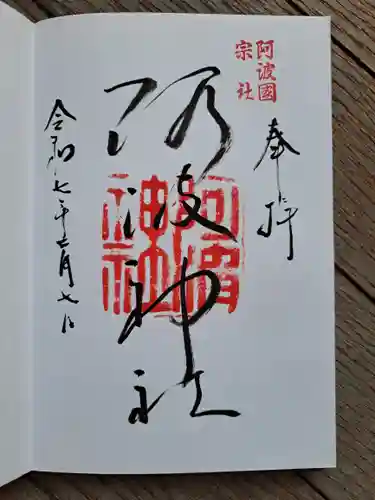 阿波國
宗社
奉拝
阿波神社
阿波
神社
令和七年六月七日